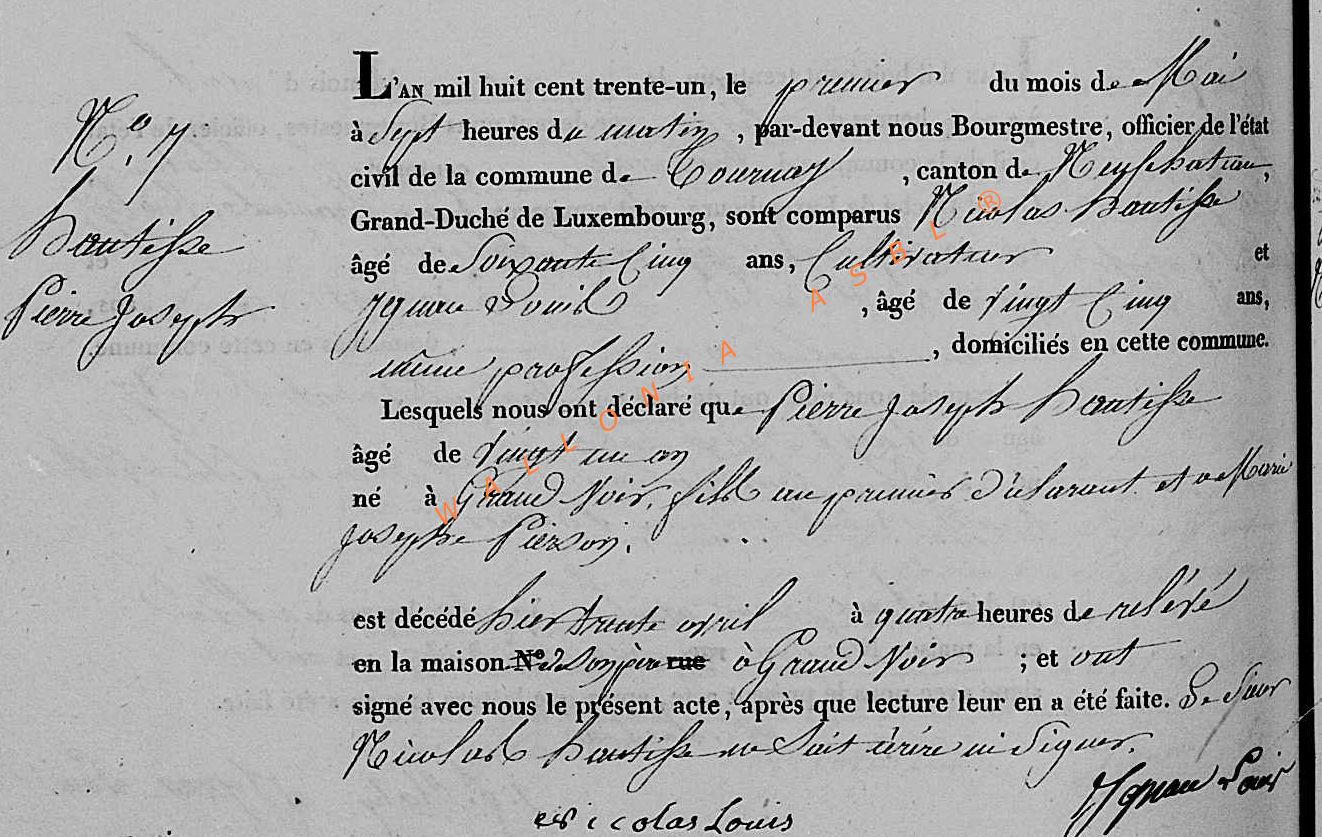 N.º 7
hautisse
Pierre Joseph
L'AN mil huit cent trente-un, le premier du mois de Mai
à Sept heures du matin, par-devant nous Bourgmestre, officier de l'état
civil de la commune de Tournay, canton de Neufchateau,
Grand-Duché de Luxembourg, sont comparus Nicolas hautisse
âgé de Soixante Cinq ans, Cultivateur et
Ignace Louis, âgé de vingt Cinq ans,
même profession, domiciliés en cette commune.
Lesquels nous ont déclaré que Pierre Joseph hautisse
âgé de vingt un an
né à Grand Voir, fils du premier déclarant et de Marie
Josephe Pierson.
est décédé hier trente avril à quatre heures de relévé
en la maison N.º de Son père rue à Grand Voir ; et ont
signé avec nous le présent acte, après que lecture leur en a été faite. Le Sieur
Nicolas hautisse ne Sait écrire ni Signer.
Nicolas Louis
Ignace Louis
WALLONIA ASBL ®